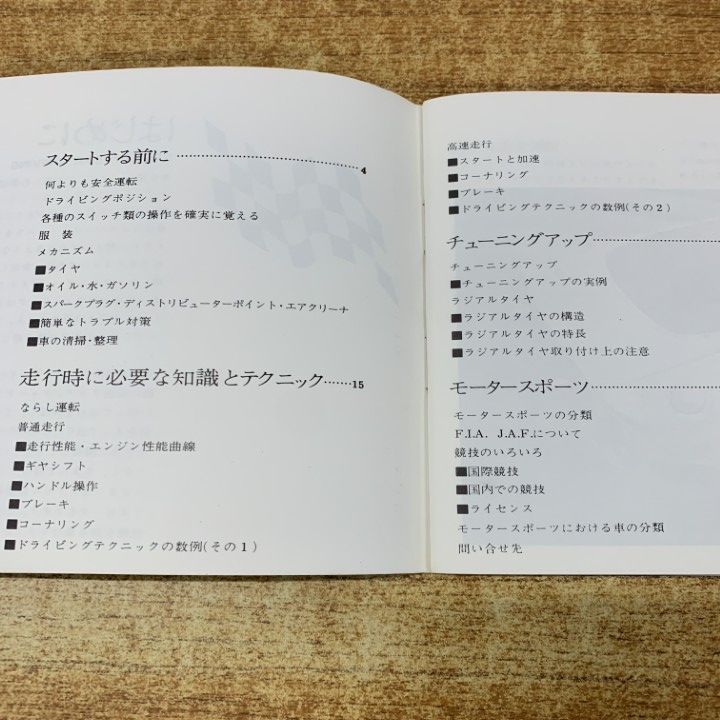 スタートする前に……………………4
何よりも安全運転
ドライビングポジション
各種のスイッチ類の操作を確実に覚える
服　装
メカニズム
■タイヤ
■オイル・水・ガソリン
■スパークプラグ・ディストリビューターポイント・エアクリーナ
■簡単なトラブル対策
■車の清掃・整理
走行時に必要な知識とテクニック……15
ならし運転
普通走行
■走行性能・エンジン性能曲線
■ギヤシフト
■ハンドル操作
■ブレーキ
■コーナリング
■ドライビングテクニックの数例(その1)
高速走行
■スタートと加速
■コーナリング
■ブレーキ
■ドライビングテクニックの数例(その2)
チューニングアップ……………………
チューニングアップ
■チューニングアップの実例
ラジアルタイヤ
■ラジアルタイヤの構造
■ラジアルタイヤの特長
■ラジアルタイヤ取り付け上の注意
モータースポーツ……………………
モータースポーツの分類
F.I.A. J.A.F.について
競技のいろいろ
■国際競技
■国内での競技
■ライセンス
モータースポーツにおける車の分類
問い合せ先
はじめに